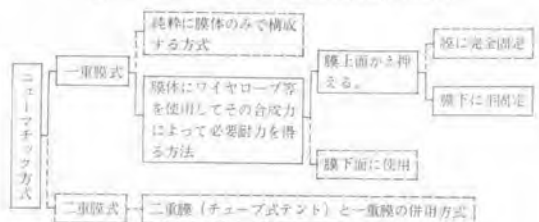 ニューマチック方式
一重膜式
純粋に膜体のみで構成
する方式
膜体にワイヤロープ等
を使用してその合成力
によって必要耐力を得
る方法
膜上面から抑
える。
膜に完全固定
膜下に半固定
膜下面に使用
二重膜式
二重膜（チューブ式テント）と一重膜の併用方式